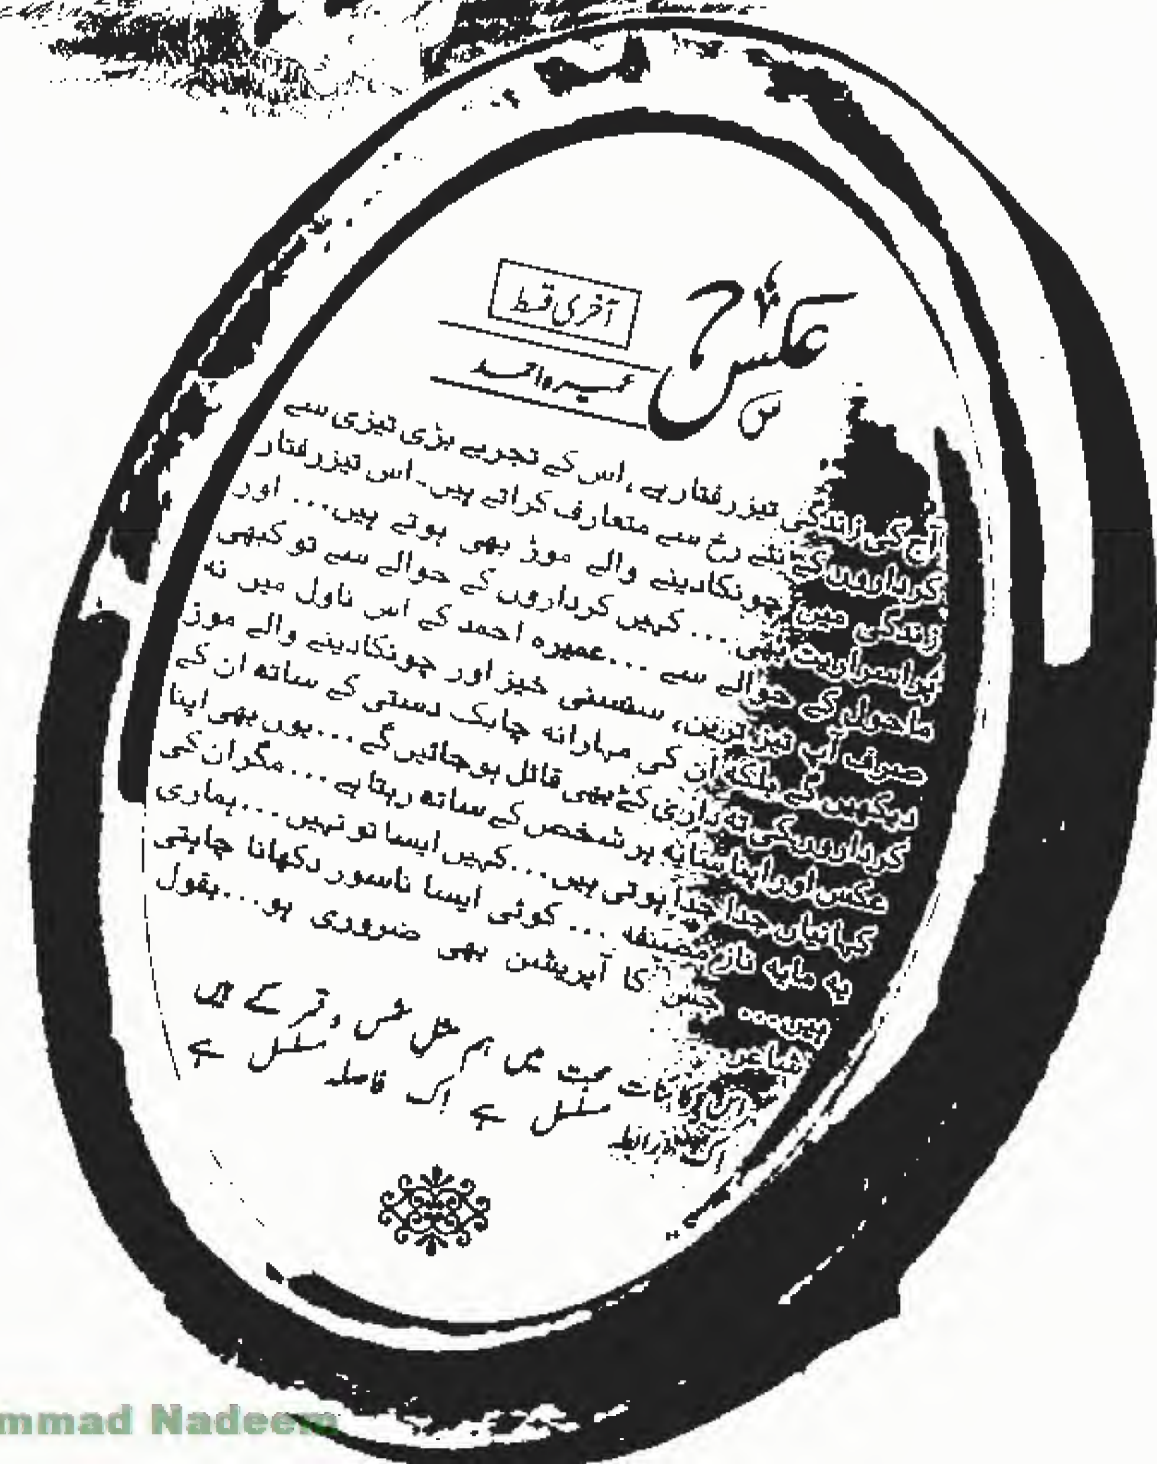 عکس
آخری قسط
عمیرہ احمد
آج کی زندگی تیزرفتارہے ،اس کے تجربے بڑی تیزی سے
کرداروں کے نئے رخ سے متعارف کراتے ہیں۔اس تیزرفتار
زندگی میں چونکادینے والے موڑ بھی ہوتے ہیں... اور
پراسراریت بھی... کہیں کرداروں کے حوالے سے تو کبھی
ماحول کے حوالے سے ...عمیرہ احمد کے اس ناول میں نہ
صرف آپ تیز ترین، سنسنی خیز اور چونکادینے والے موڑ
دیکھیں گے بلکہ ان کی مہارانہ چابک دستی کے ساتھ ان کے
کرداروں کی تہ داری کے بھی قائل ہوجائیں گے...یوں بھی اپنا
عکس اور اپنا سایہ ہر شخص کے ساتھ رہتا ہے... مگر ان کی
کہانیاں جدا جدا ہوتی ہیں...کہیں ایسا تو نہیں...ہماری
یہ مایہ ناز مصنفہ ... کوئی ایسا ناسور دکھانا چاہتی
ہیں... جس کا آپریشن بھی ضروری ہو...بقول
شاعر...
اس کائنات محبت میں ہم مثل شمس و قمر کے ہیں
اک رابطہ مسلسل ہے اک فاصلہ مسلسل ہے
mmad Nadeem